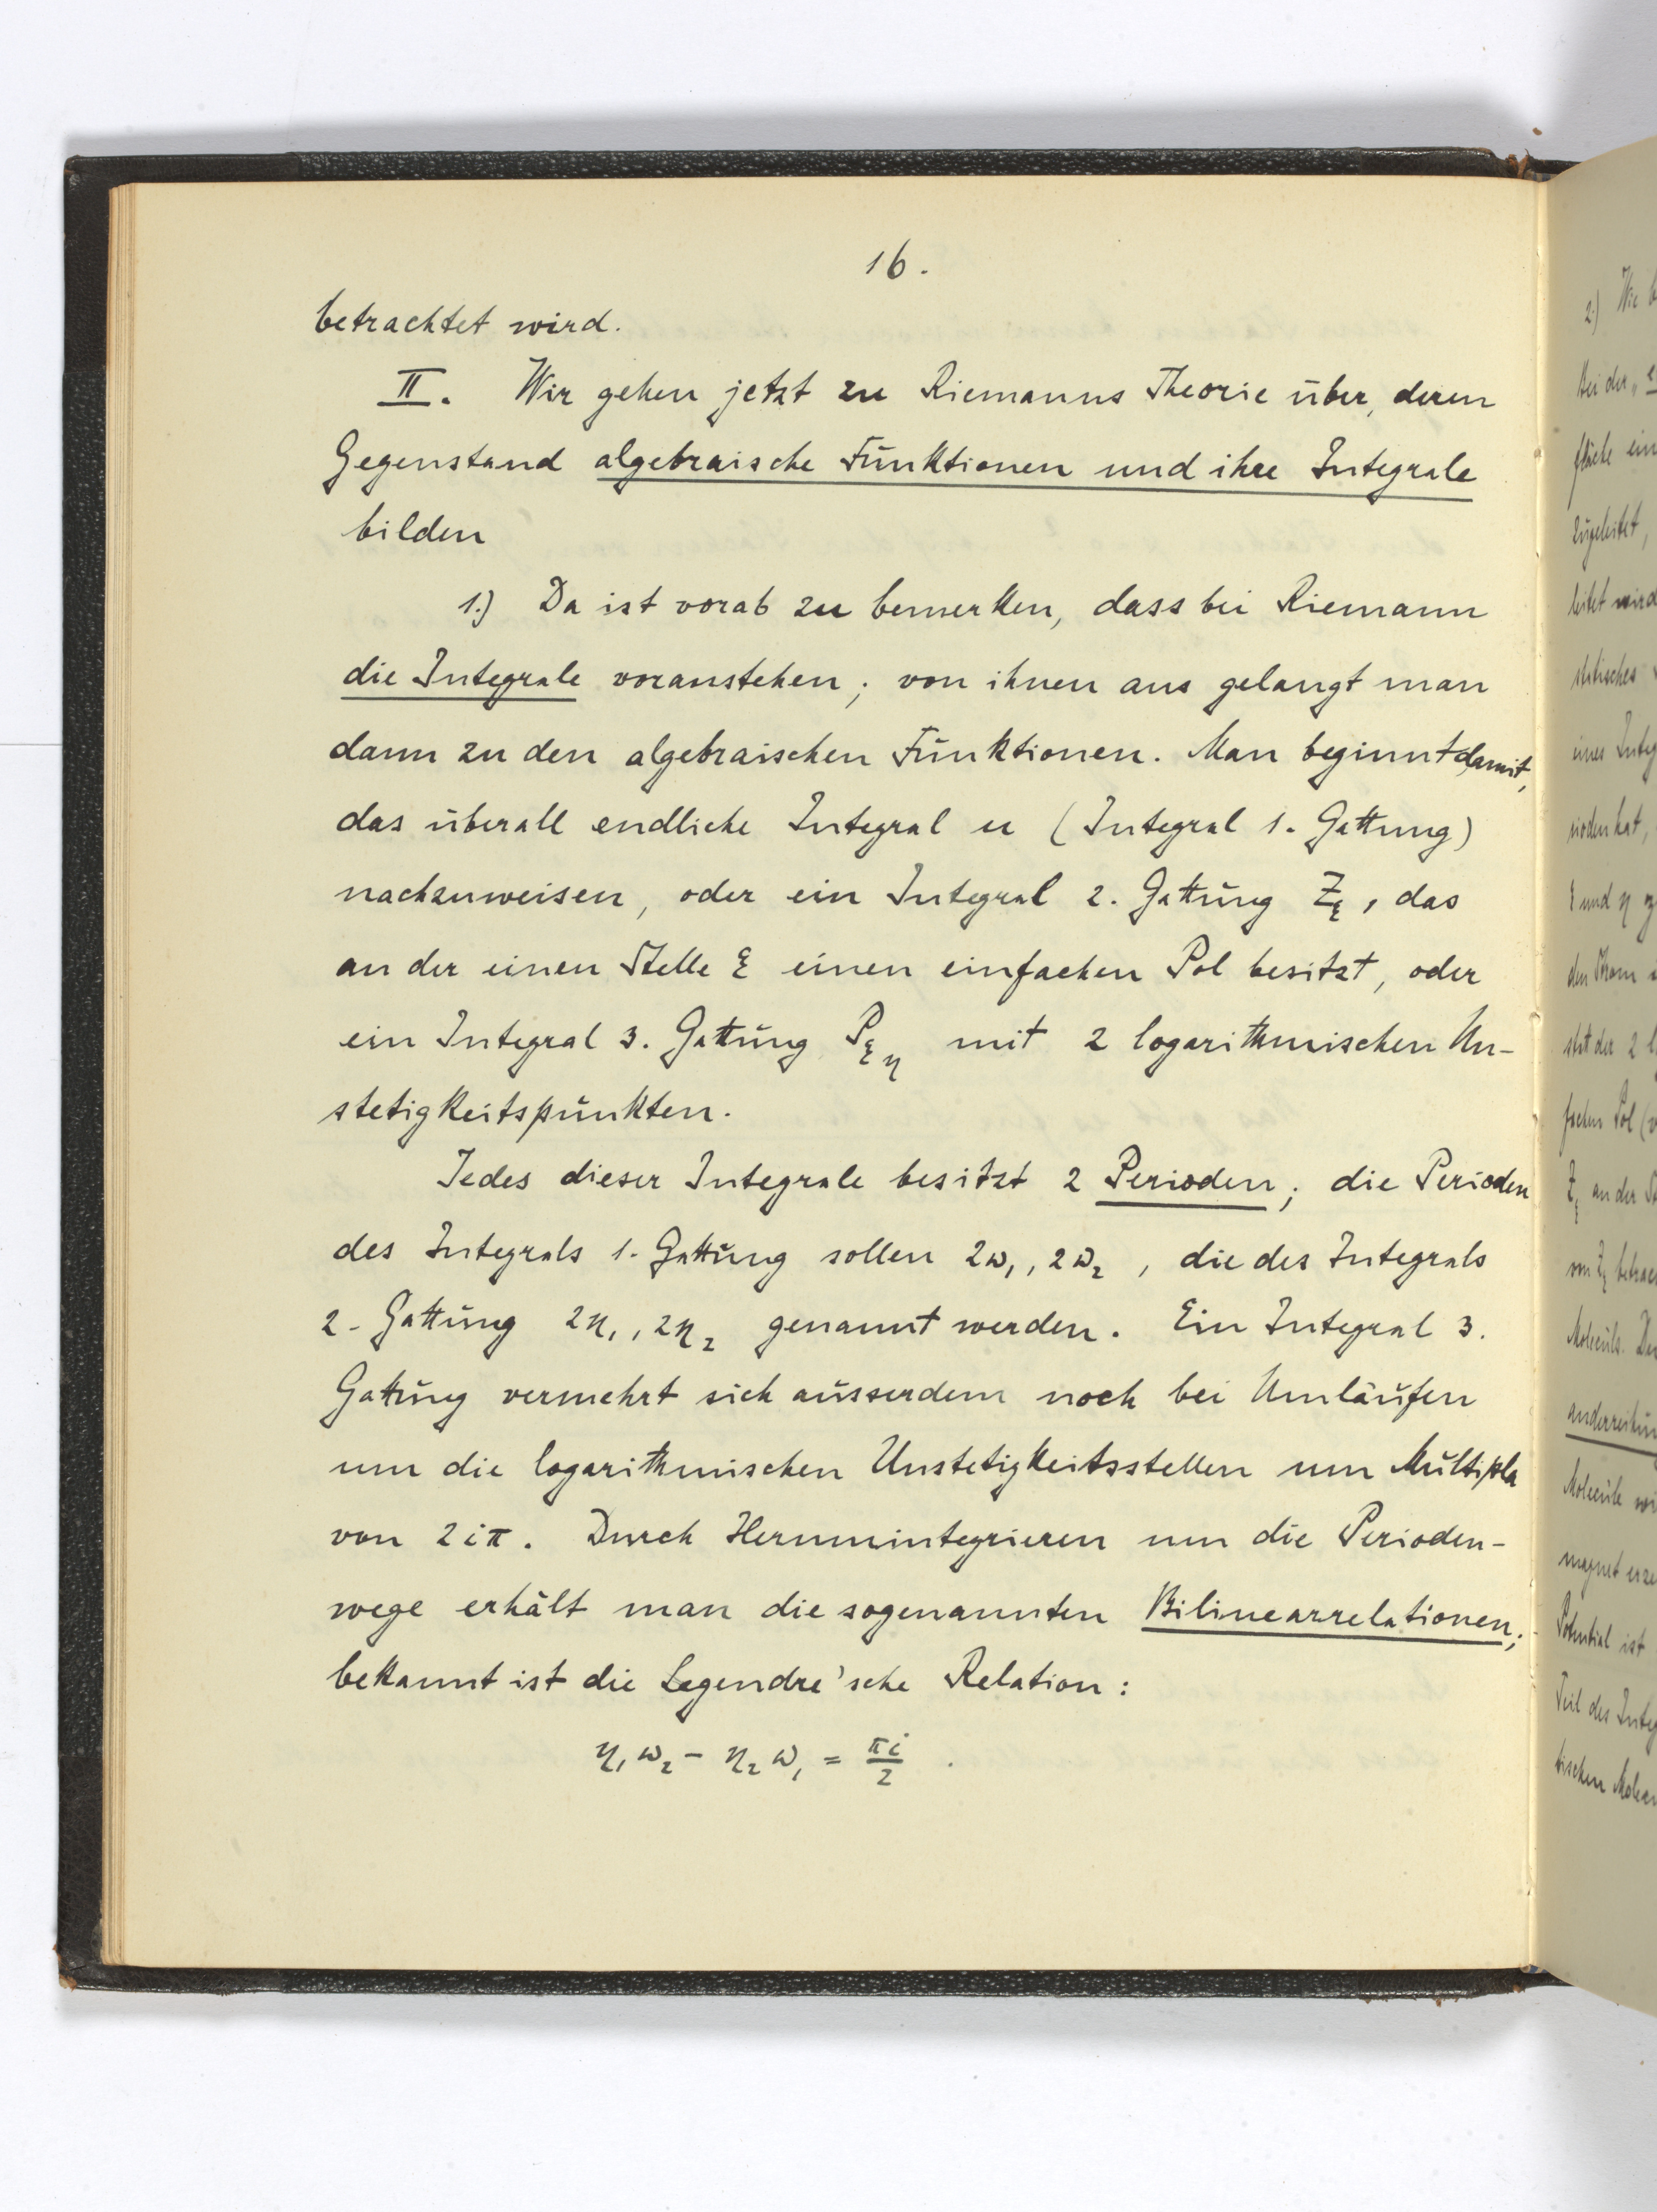 16.
betrachtet wird.
II. Wir gehen jetzt zu Riemanns Theorie über, deren
Gegenstand algebraische Funktionen und ihre Integrale
bilden
1.) Da ist vorab zu bemerken, dass bei Riemann
die Integrale voranstehen; von ihnen aus gelangt man
dann zu den algebraischen Funktionen. Man beginnt damit,
das überall endliche Integral u (Integral 1. Gattung)
nachzuweisen, oder ein Integral 2. Gattung Z_ξ, das
an der einen Stelle ξ einen einfachen Pol besitzt, oder
ein Integral 3. Gattung P_ξη mit 2 logarithmischen Un-
stetigkeitspunkten.
Jedes dieser Integrale besitzt 2 Perioden; die Perioden
des Integrals 1. Gattung sollen 2ω₁, 2ω₂, die des Integrals
2. Gattung 2η₁, 2η₂ genannt werden. Ein Integral 3.
Gattung vermehrt sich ausserdem noch bei Umläufen
um die logarithmischen Unstetigkeitsstellen um Multipla
von 2iπ. Durch Herumintegrieren um die Perioden-
wege erhält man die sogenannten Bilinearrelationen;
bekannt ist die Legendre'sche Relation:
η₁ω₂ - η₂ω₁ = πi/2.
2.) Wie
Bei der
fläche ein
zugeleitet,
leitet wird
eines Integ
rioden hat,
ξ und η
den Strom
statt der 2
fachen Pol
Z_ξ an der
von Z_ξ
Moleküls.
Moleküle
magnet
Potential ist
Teil des Integ
tischen